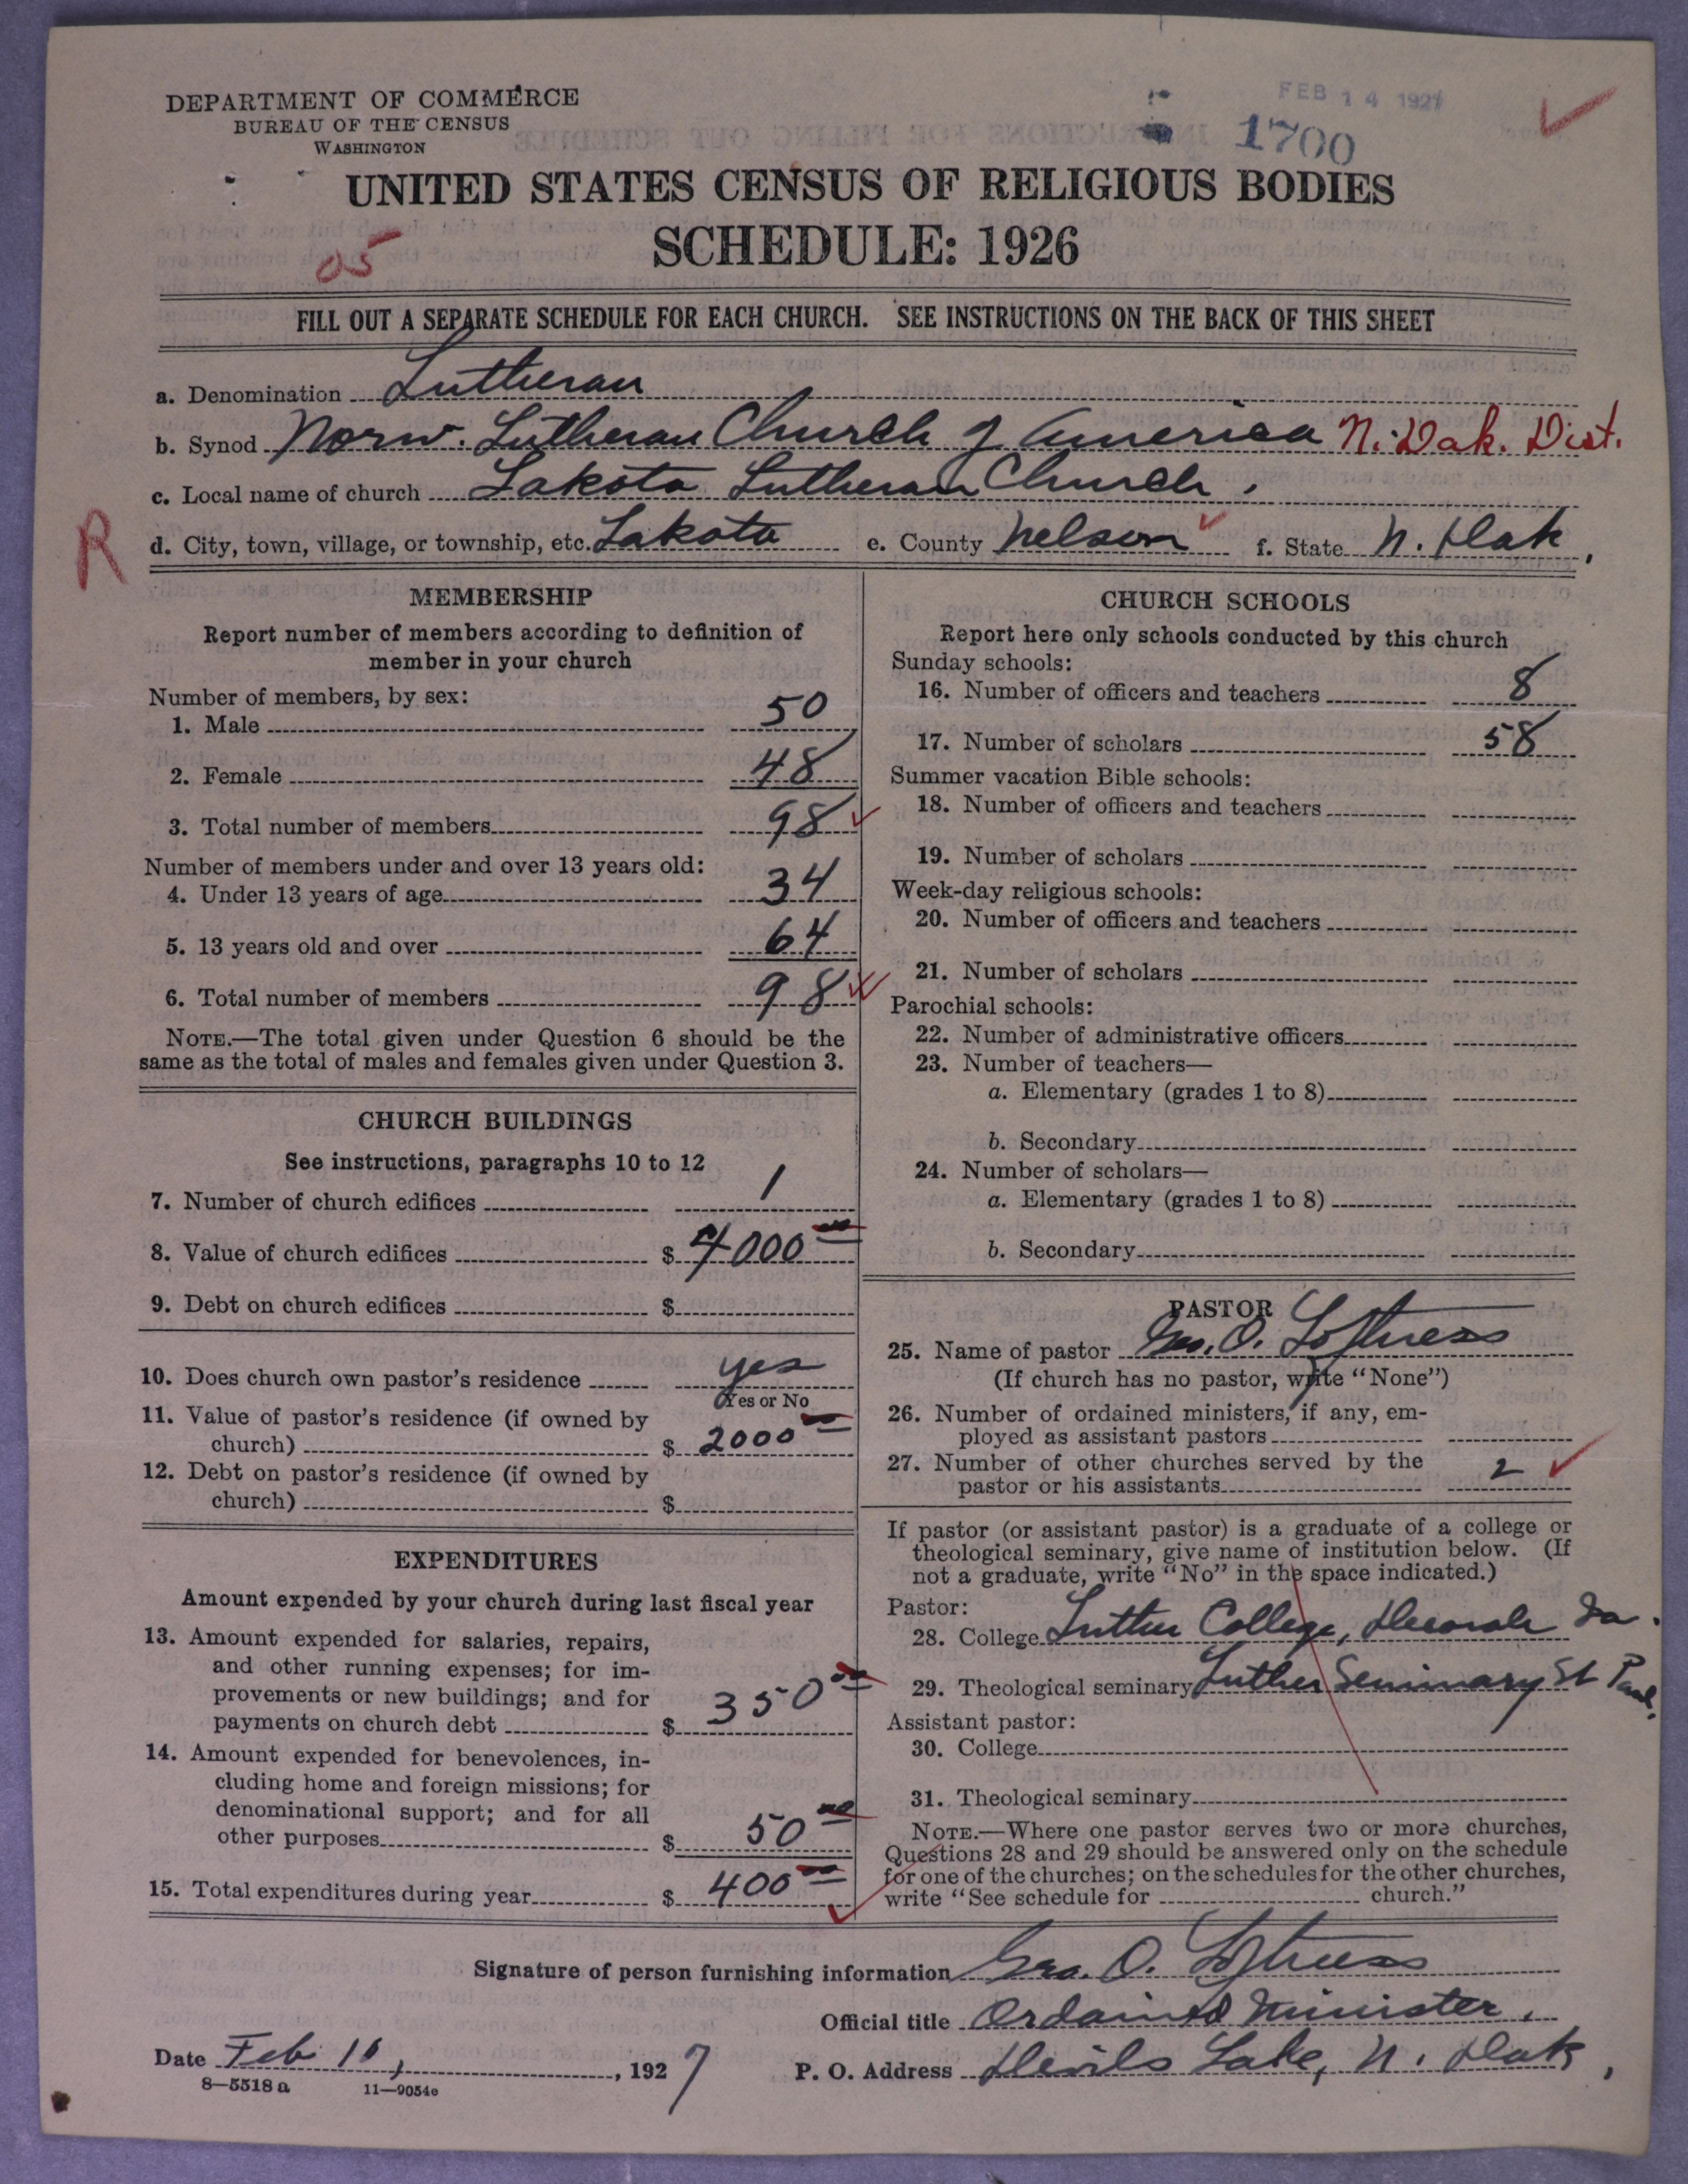 DEPARTMENT OF COMMERCE
BUREAU OF THE CENSUS
WASHINGTON
FEB 14 1927
1700
UNITED STATES CENSUS OF RELIGIOUS BODIES
SCHEDULE: 1926
05
FILL OUT A SEPARATE SCHEDULE FOR EACH CHURCH. SEE INSTRUCTIONS ON THE BACK OF THIS SHEET
a. Denomination Lutheran
b. Synod Norw. Lutheran Church of America N. Dak. Dist.
c. Local name of church Lakota Lutheran Church.
R
d. City, town, village, or township, etc. Lakota e. County Nelson f. State N. Dak.
MEMBERSHIP
Report number of members according to definition of
member in your church
Number of members, by sex:
1. Male 50
2. Female 48
3. Total number of members 98
Number of members under and over 13 years old:
4. Under 13 years of age 34
5. 13 years old and over 64
6. Total number of members 98
NOTE.—The total given under Question 6 should be the
same as the total of males and females given under Question 3.
CHURCH BUILDINGS
See instructions, paragraphs 10 to 12
7. Number of church edifices 1
8. Value of church edifices $ 4000 00
9. Debt on church edifices $
10. Does church own pastor's residence yes
Yes or No
11. Value of pastor's residence (if owned by
church) $ 2000 00
12. Debt on pastor's residence (if owned by
church) $
EXPENDITURES
Amount expended by your church during last fiscal year
13. Amount expended for salaries, repairs,
and other running expenses; for im-
provements or new buildings; and for
payments on church debt $ 350 00
14. Amount expended for benevolences, in-
cluding home and foreign missions; for
denominational support; and for all
other purposes $ 50 00
15. Total expenditures during year $ 400 00
CHURCH SCHOOLS
Report here only schools conducted by this church
Sunday schools:
16. Number of officers and teachers 8
17. Number of scholars 58
Summer vacation Bible schools:
18. Number of officers and teachers
19. Number of scholars
Week-day religious schools:
20. Number of officers and teachers
21. Number of scholars
Parochial schools:
22. Number of administrative officers
23. Number of teachers—
a. Elementary (grades 1 to 8)
b. Secondary
24. Number of scholars—
a. Elementary (grades 1 to 8)
b. Secondary
PASTOR
25. Name of pastor Geo. O. Lofthness
(If church has no pastor, write "None")
26. Number of ordained ministers, if any, em-
ployed as assistant pastors
27. Number of other churches served by the
pastor or his assistants 2
If pastor (or assistant pastor) is a graduate of a college or
theological seminary, give name of institution below. (If
not a graduate, write "No" in the space indicated.)
Pastor:
28. College Luther College, Decorah Ia.
29. Theological seminary Luther Seminary St Paul.
Assistant pastor:
30. College
31. Theological seminary
NOTE.—Where one pastor serves two or more churches,
Questions 28 and 29 should be answered only on the schedule
for one of the churches; on the schedules for the other churches,
write "See schedule for church."
Signature of person furnishing information Geo. O.
Official title Ordained Minister.
Date Feb 10, 1927 P. O. Address Devils Lake, N. Dak.
8—5518 a 11—9054e